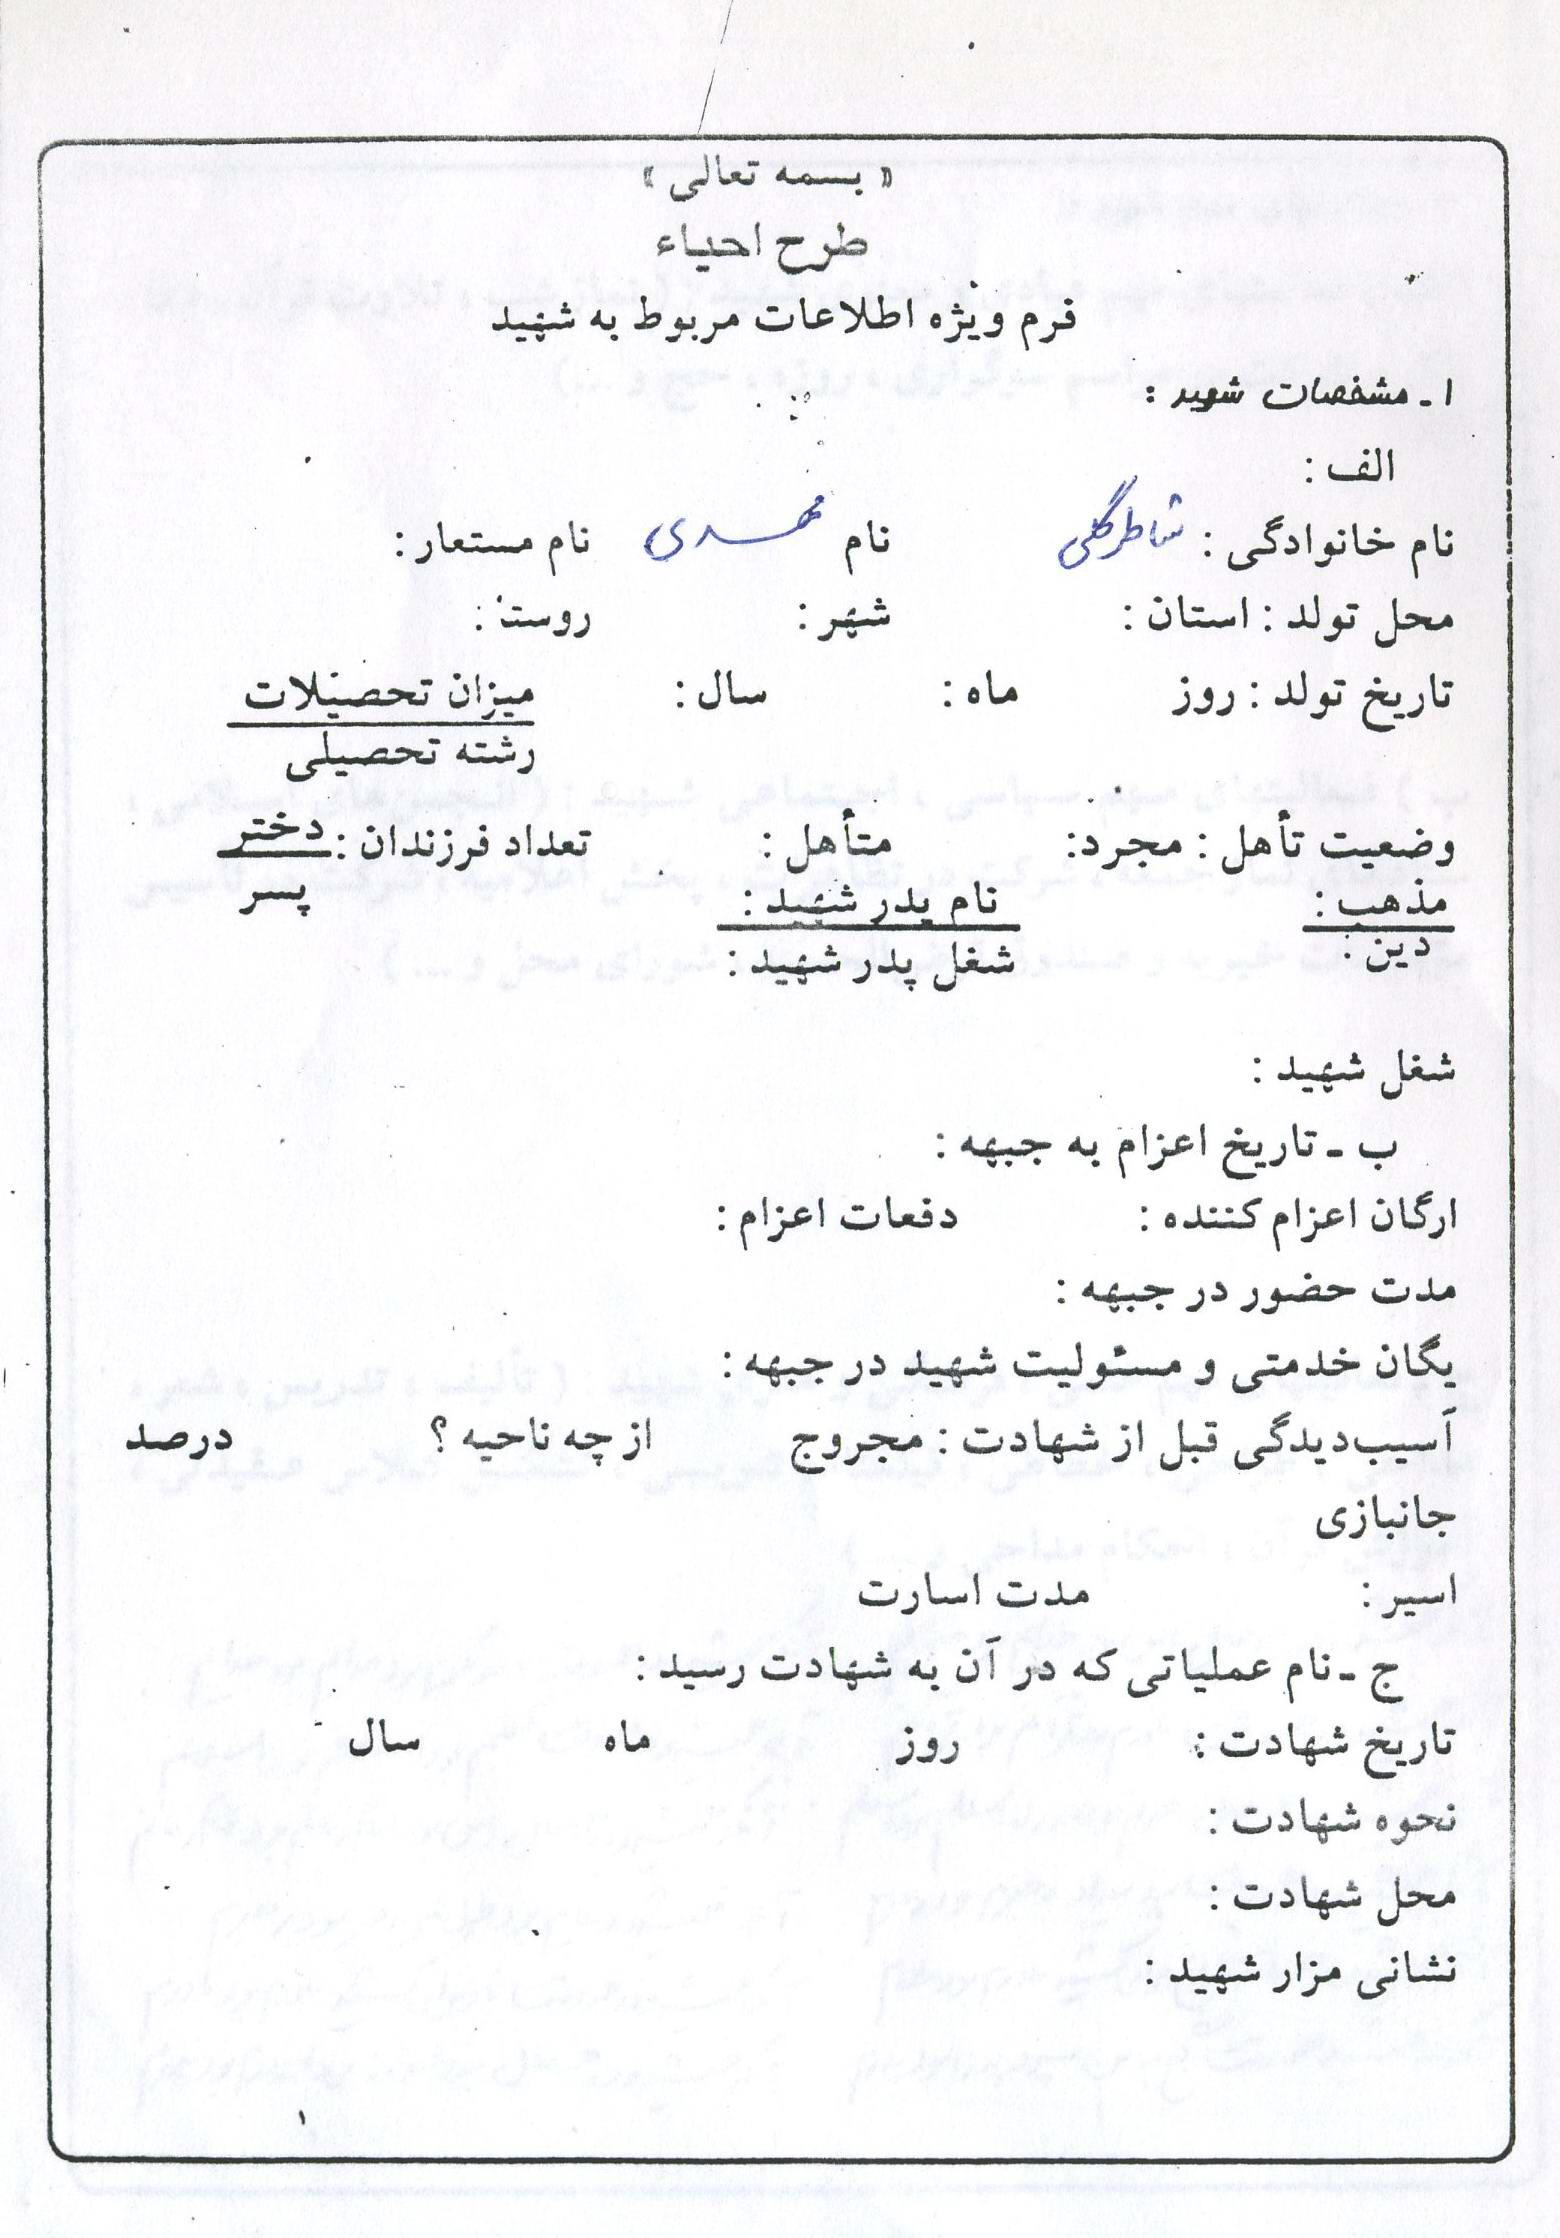 « بسمه تعالی »
طرح احیاء
فرم ویژه اطلاعات مربوط به شهید
۱ـ مشخصات شهید :
الف :
نام خانوادگی : شاطرگلی نام مهدی نام مستعار :
محل تولد : استان : شهر : روستا :
تاریخ تولد : روز ماه : سال : میزان تحصیلات
رشته تحصیلی
وضعیت تأهل : مجرد: متأهل : تعداد فرزندان : دختر
مذهب : نام پدر شهید : پسر
دین : شغل پدر شهید :
شغل شهید :
ب ـ تاریخ اعزام به جبهه :
ارگان اعزام کننده : دفعات اعزام :
مدت حضور در جبهه :
یگان خدمتی و مسئولیت شهید در جبهه :
آسیب‌دیدگی قبل از شهادت : مجروح از چه ناحیه ؟ درصد
جانبازی
اسیر : مدت اسارت
ج ـ نام عملیاتی که در آن به شهادت رسید :
تاریخ شهادت : روز ماه سال
نحوه شهادت :
محل شهادت :
نشانی مزار شهید :
۱